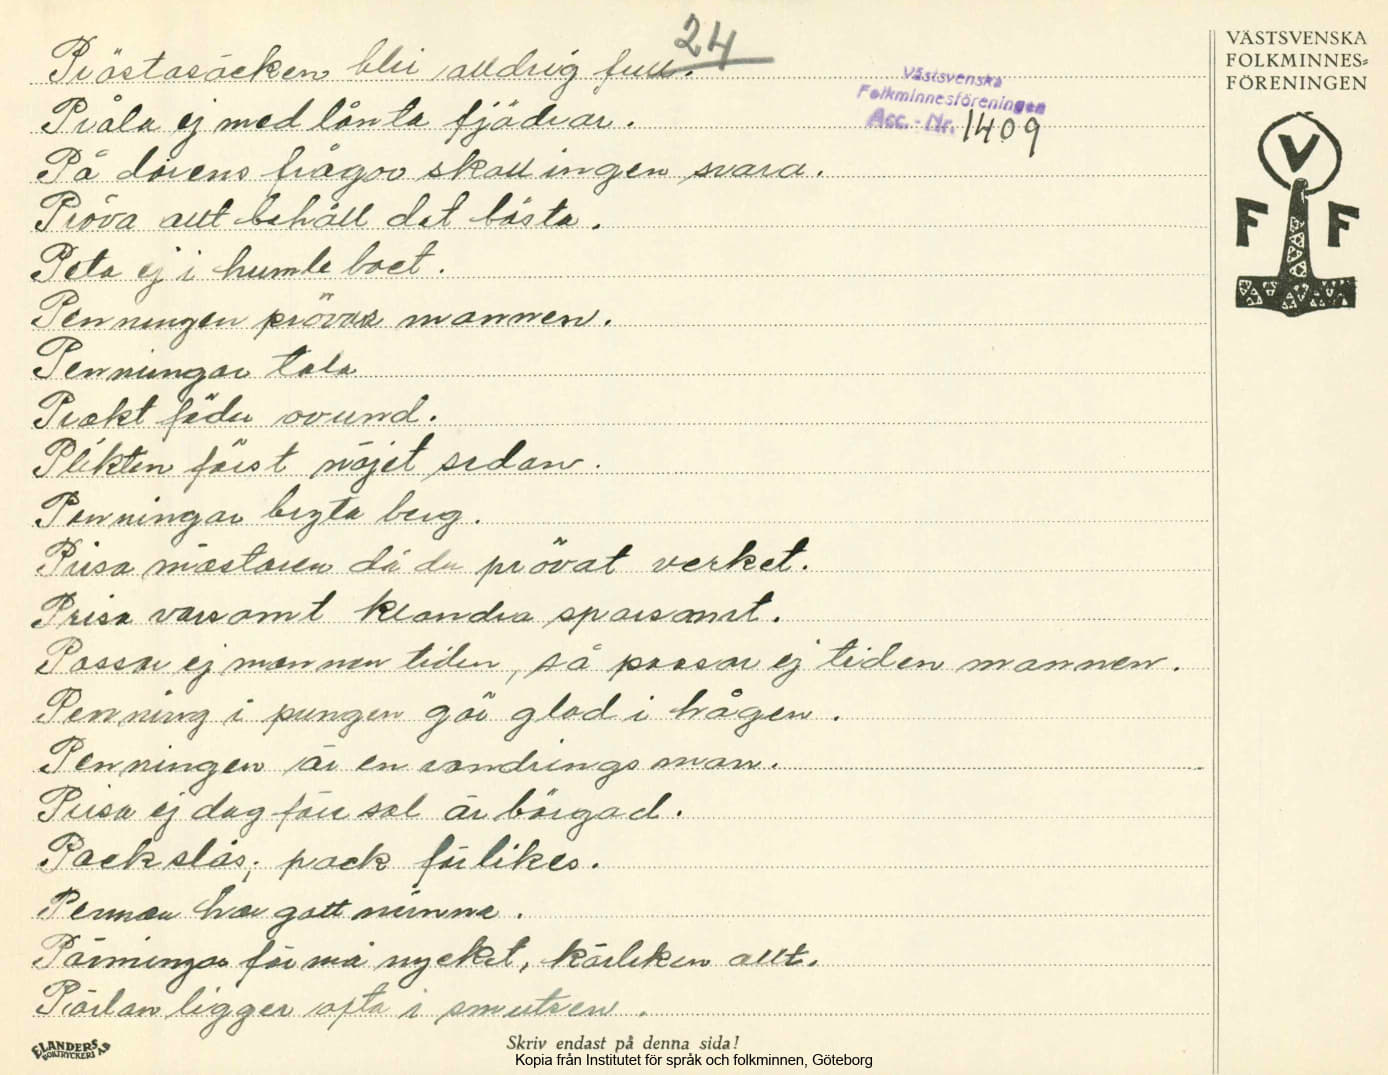 24
VÄSTSVENSKA
FOLKMINNES=
FÖRENINGEN
Västsvenska
Folkminnesföreningen
Acc. - Nr. 1409
V
F F
Prästasäcken bli alldrig full.
Pråla ej med lånta fjädrar.
På dårens frågor skall ingen svara.
Pröva allt behåll det bästa.
Peta ej i humle boet.
Penningen prövar mannen.
Penningar tala
Prakt föder avund.
Plikten först nöjet sedan.
Penningar bryta berg.
Prisa mästaren då du prövat verket.
Prisa varsamt klandra sparsamt.
Passar ej mannen tiden, så passar ej tiden mannen.
Penning i pungen gör glad i hågen.
Penningen är en vandrings man.
Prisa ej dag förr sol är bärgad.
Pack slås; pack förlikes.
Pennan har gott minne.
Pänningar förmå mycket, kärleken allt.
Pärlan ligger ofta i smutsen.
ELANDERS
BOKTRYCKERI A.B
Skriv endast på denna sida!
Kopia från Institutet för språk och folkminnen, Göteborg